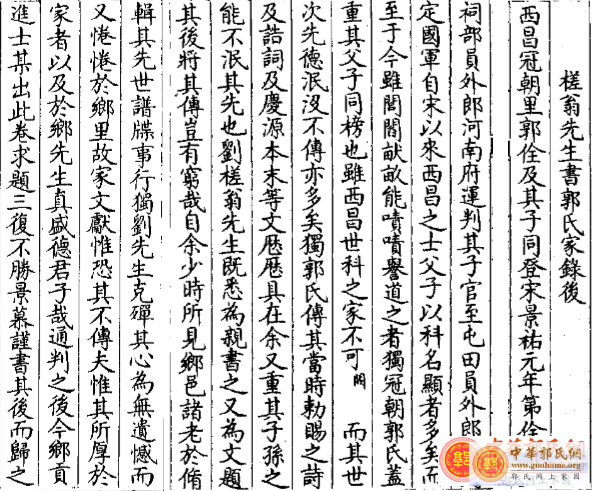 槎翁先生書郭氏家錄後
西昌冠朝里郭佺及其子同登宋景祐元年第佺
祠部員外郎河南府運判其子官至屯田員外郎
定國軍自宋以來西昌之士父子以科名顯者多矣而
至于今雖閭閻畎畝能嘖嘖譽道之者獨冠朝郭氏蓋
重其父子同榜也雖西昌世科之家不可 而其世
次先德泯沒不傳亦多矣獨郭氏傳其當時勅賜之詩
及誥詞及慶源本末等文歷歷具在余又重其子孫之
能不泯其先也劉槎翁先生既悉為親書之又為文題
其後將其傳豈有窮哉自余少時所見鄉邑諸老於脩
輯其先世譜牒事行獨劉先生克殫其心為無遺憾而
又惓惓於鄉里故家文獻惟恐其不傳夫惟其所厚於
家者以及於鄉先生真盛德君子哉通判之後今鄉貢
進士某出此卷求題三復不勝景慕謹書其後而歸之
中華郭氏網
www.guohome.org
郭氏網上家園